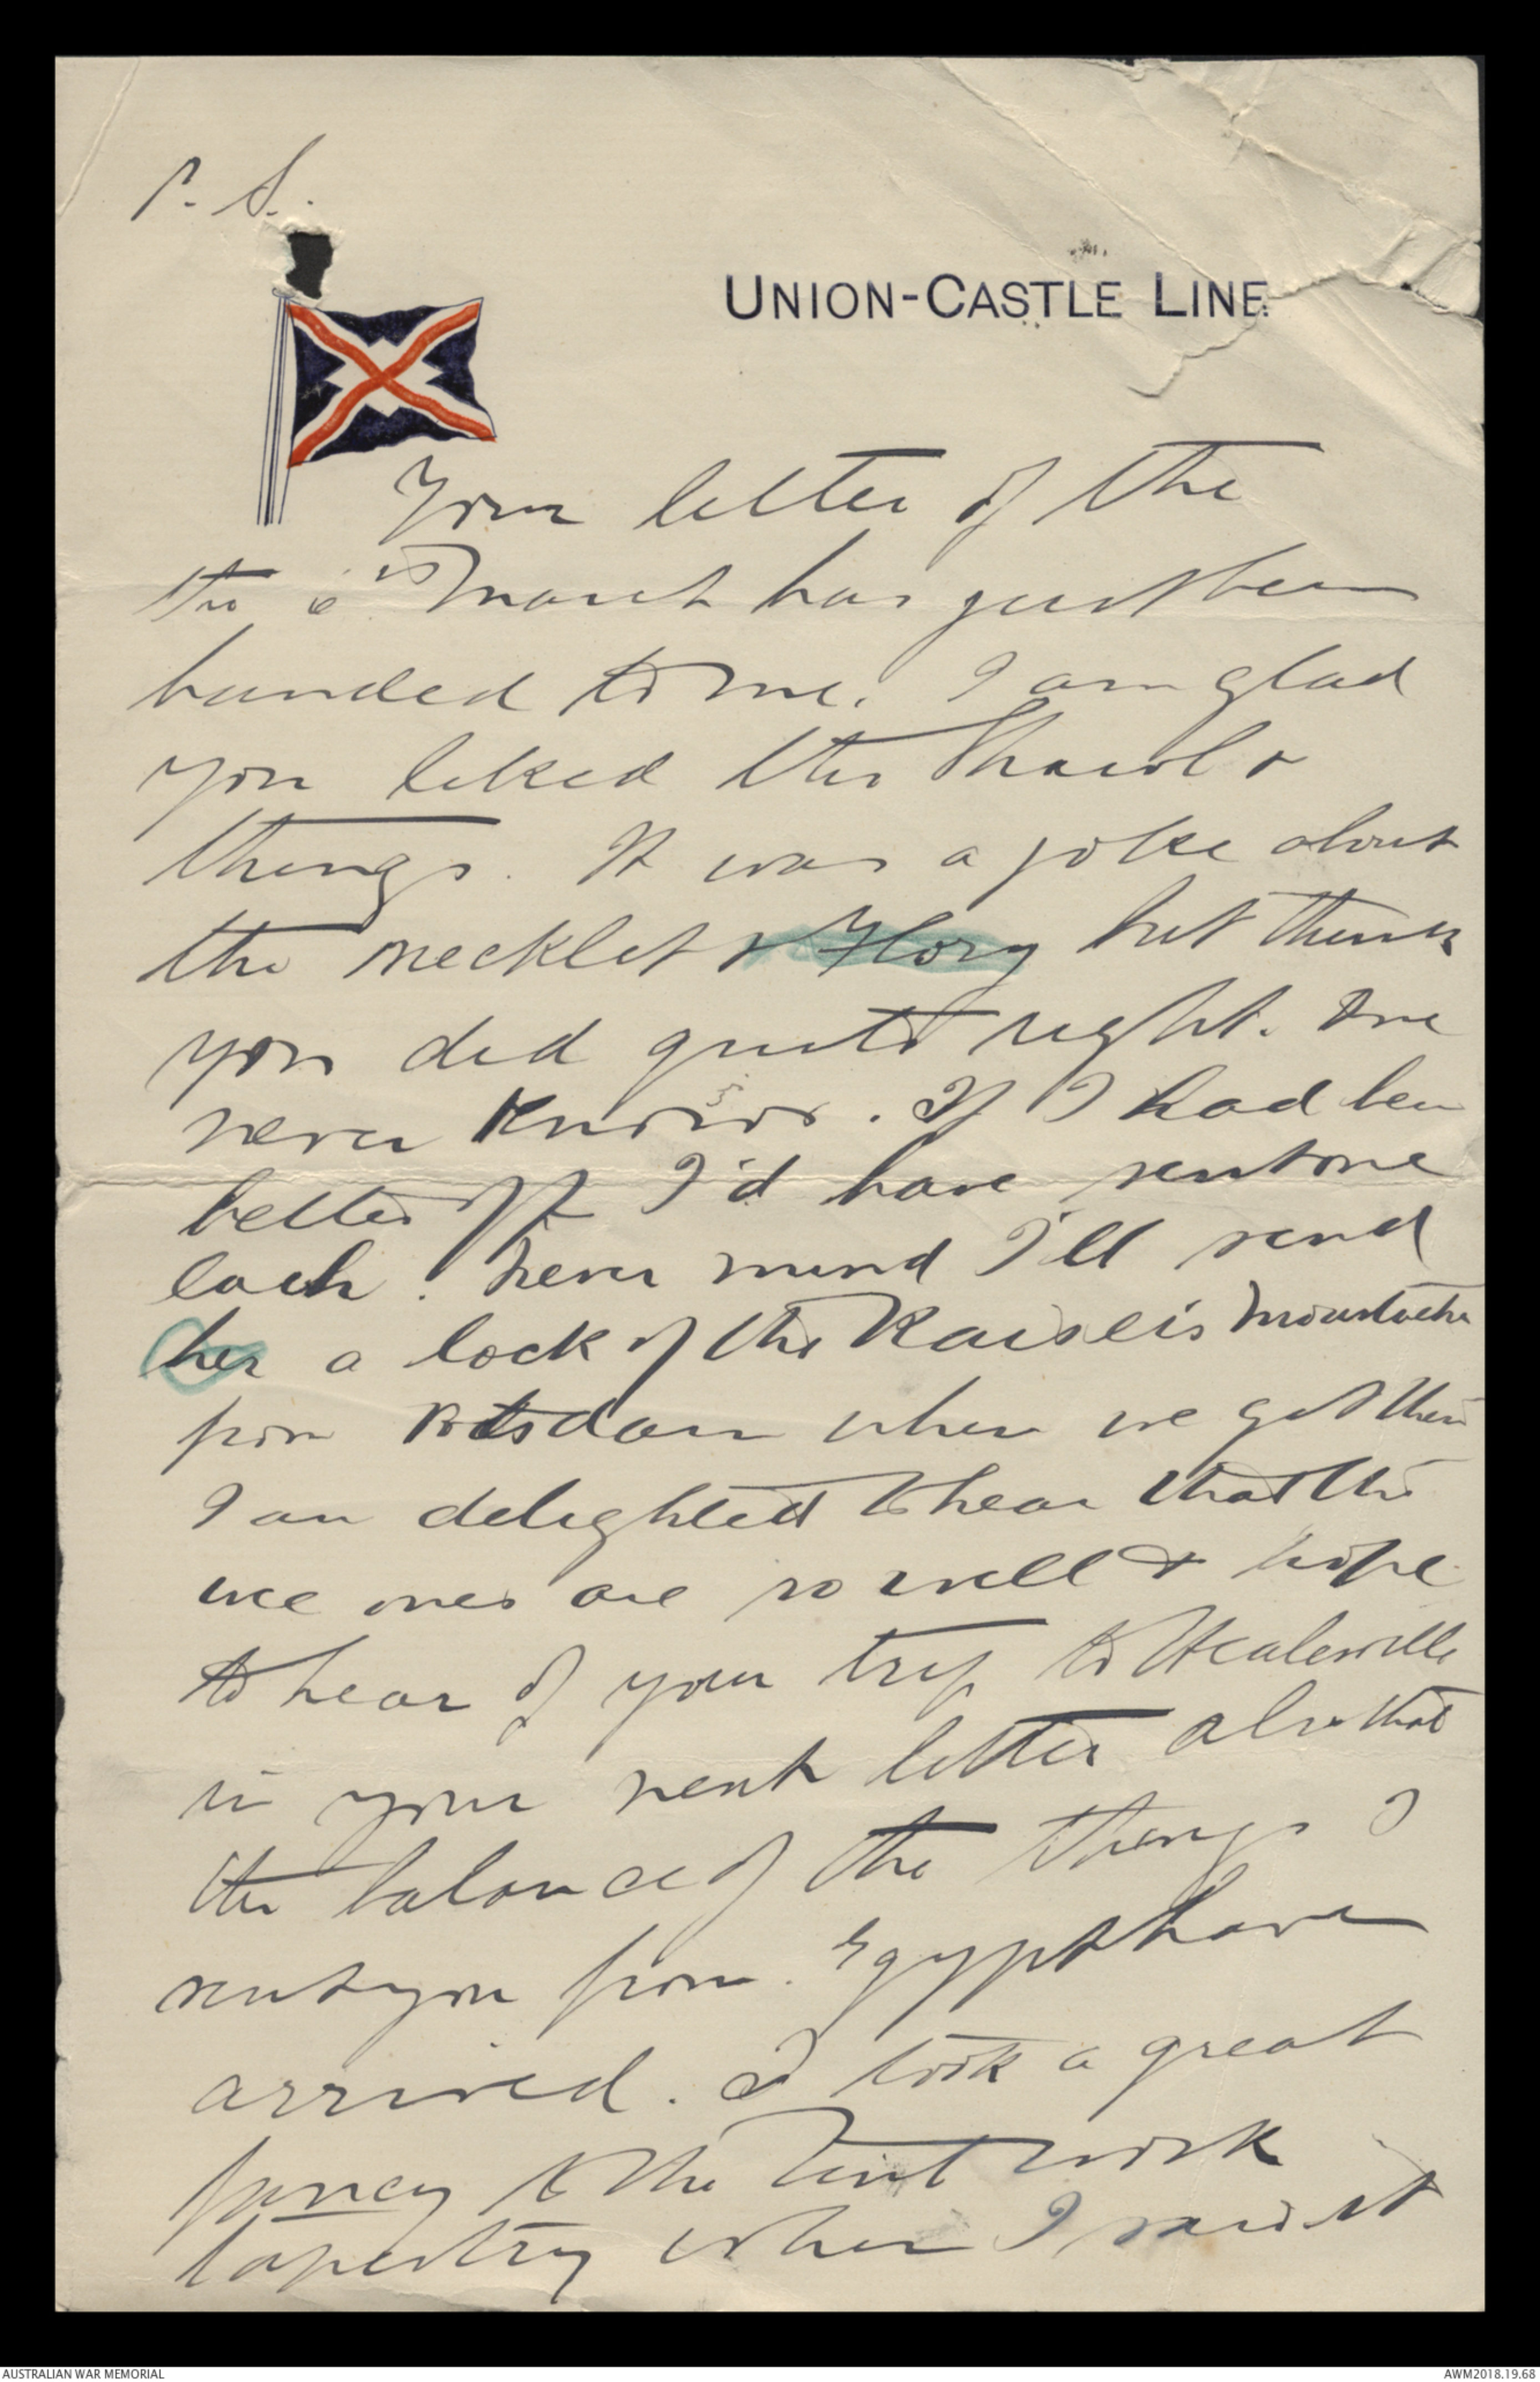 P.S.
UNION-CASTLE LINE.
Your letter of the
the 6th March has just been
handed to me. I am glad
you liked the Shawl &
things. It was a joke about
the necklet & Flory but think
you did quite right. One
never knows. If I had been
better off I'd have sent one
each. Never mind I'll send
her a lock of the Kaiser's Moustache
from Potsdam when we get there
I am delighted to hear that the
wee ones are so well & hope
to hear of your trip to Healesville
in your next letter also that
the balance of the things I
sent you from Egypt have
arrived. I took a great
fancy to the tent work
tapestry when I saw it
AUSTRALIAN WAR MEMORIAL
AWM2018.19.68